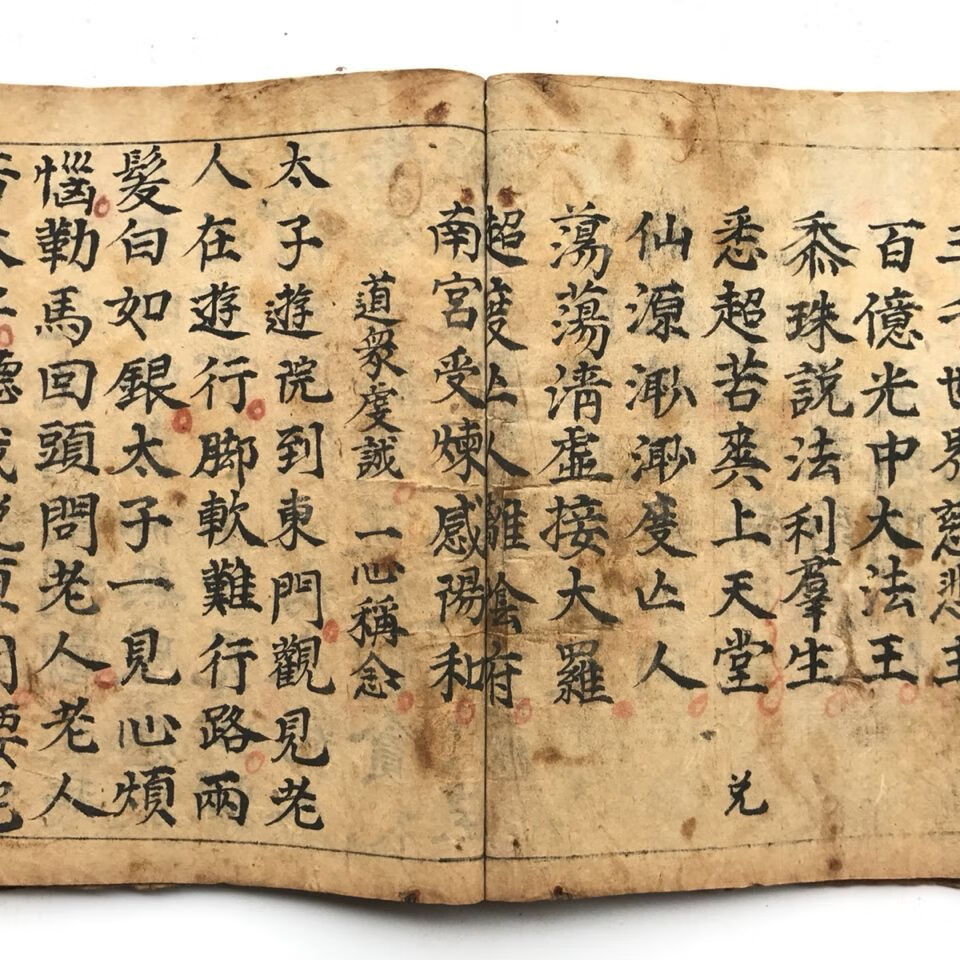 世界慈悲主
百億光中大法王
黍珠説法利羣生
悉超苦爽上天堂
兑
仙源渺渺度亾人
蕩蕩清虛接大羅
超度亾人離陰府
南宮受煉感陽和
道衆虔誠 一心稱念
太子遊院到東門觀見老
人在遊行脚軟難行路兩
髮白如銀太子一見心煩
惱勒馬回頭問老人老人